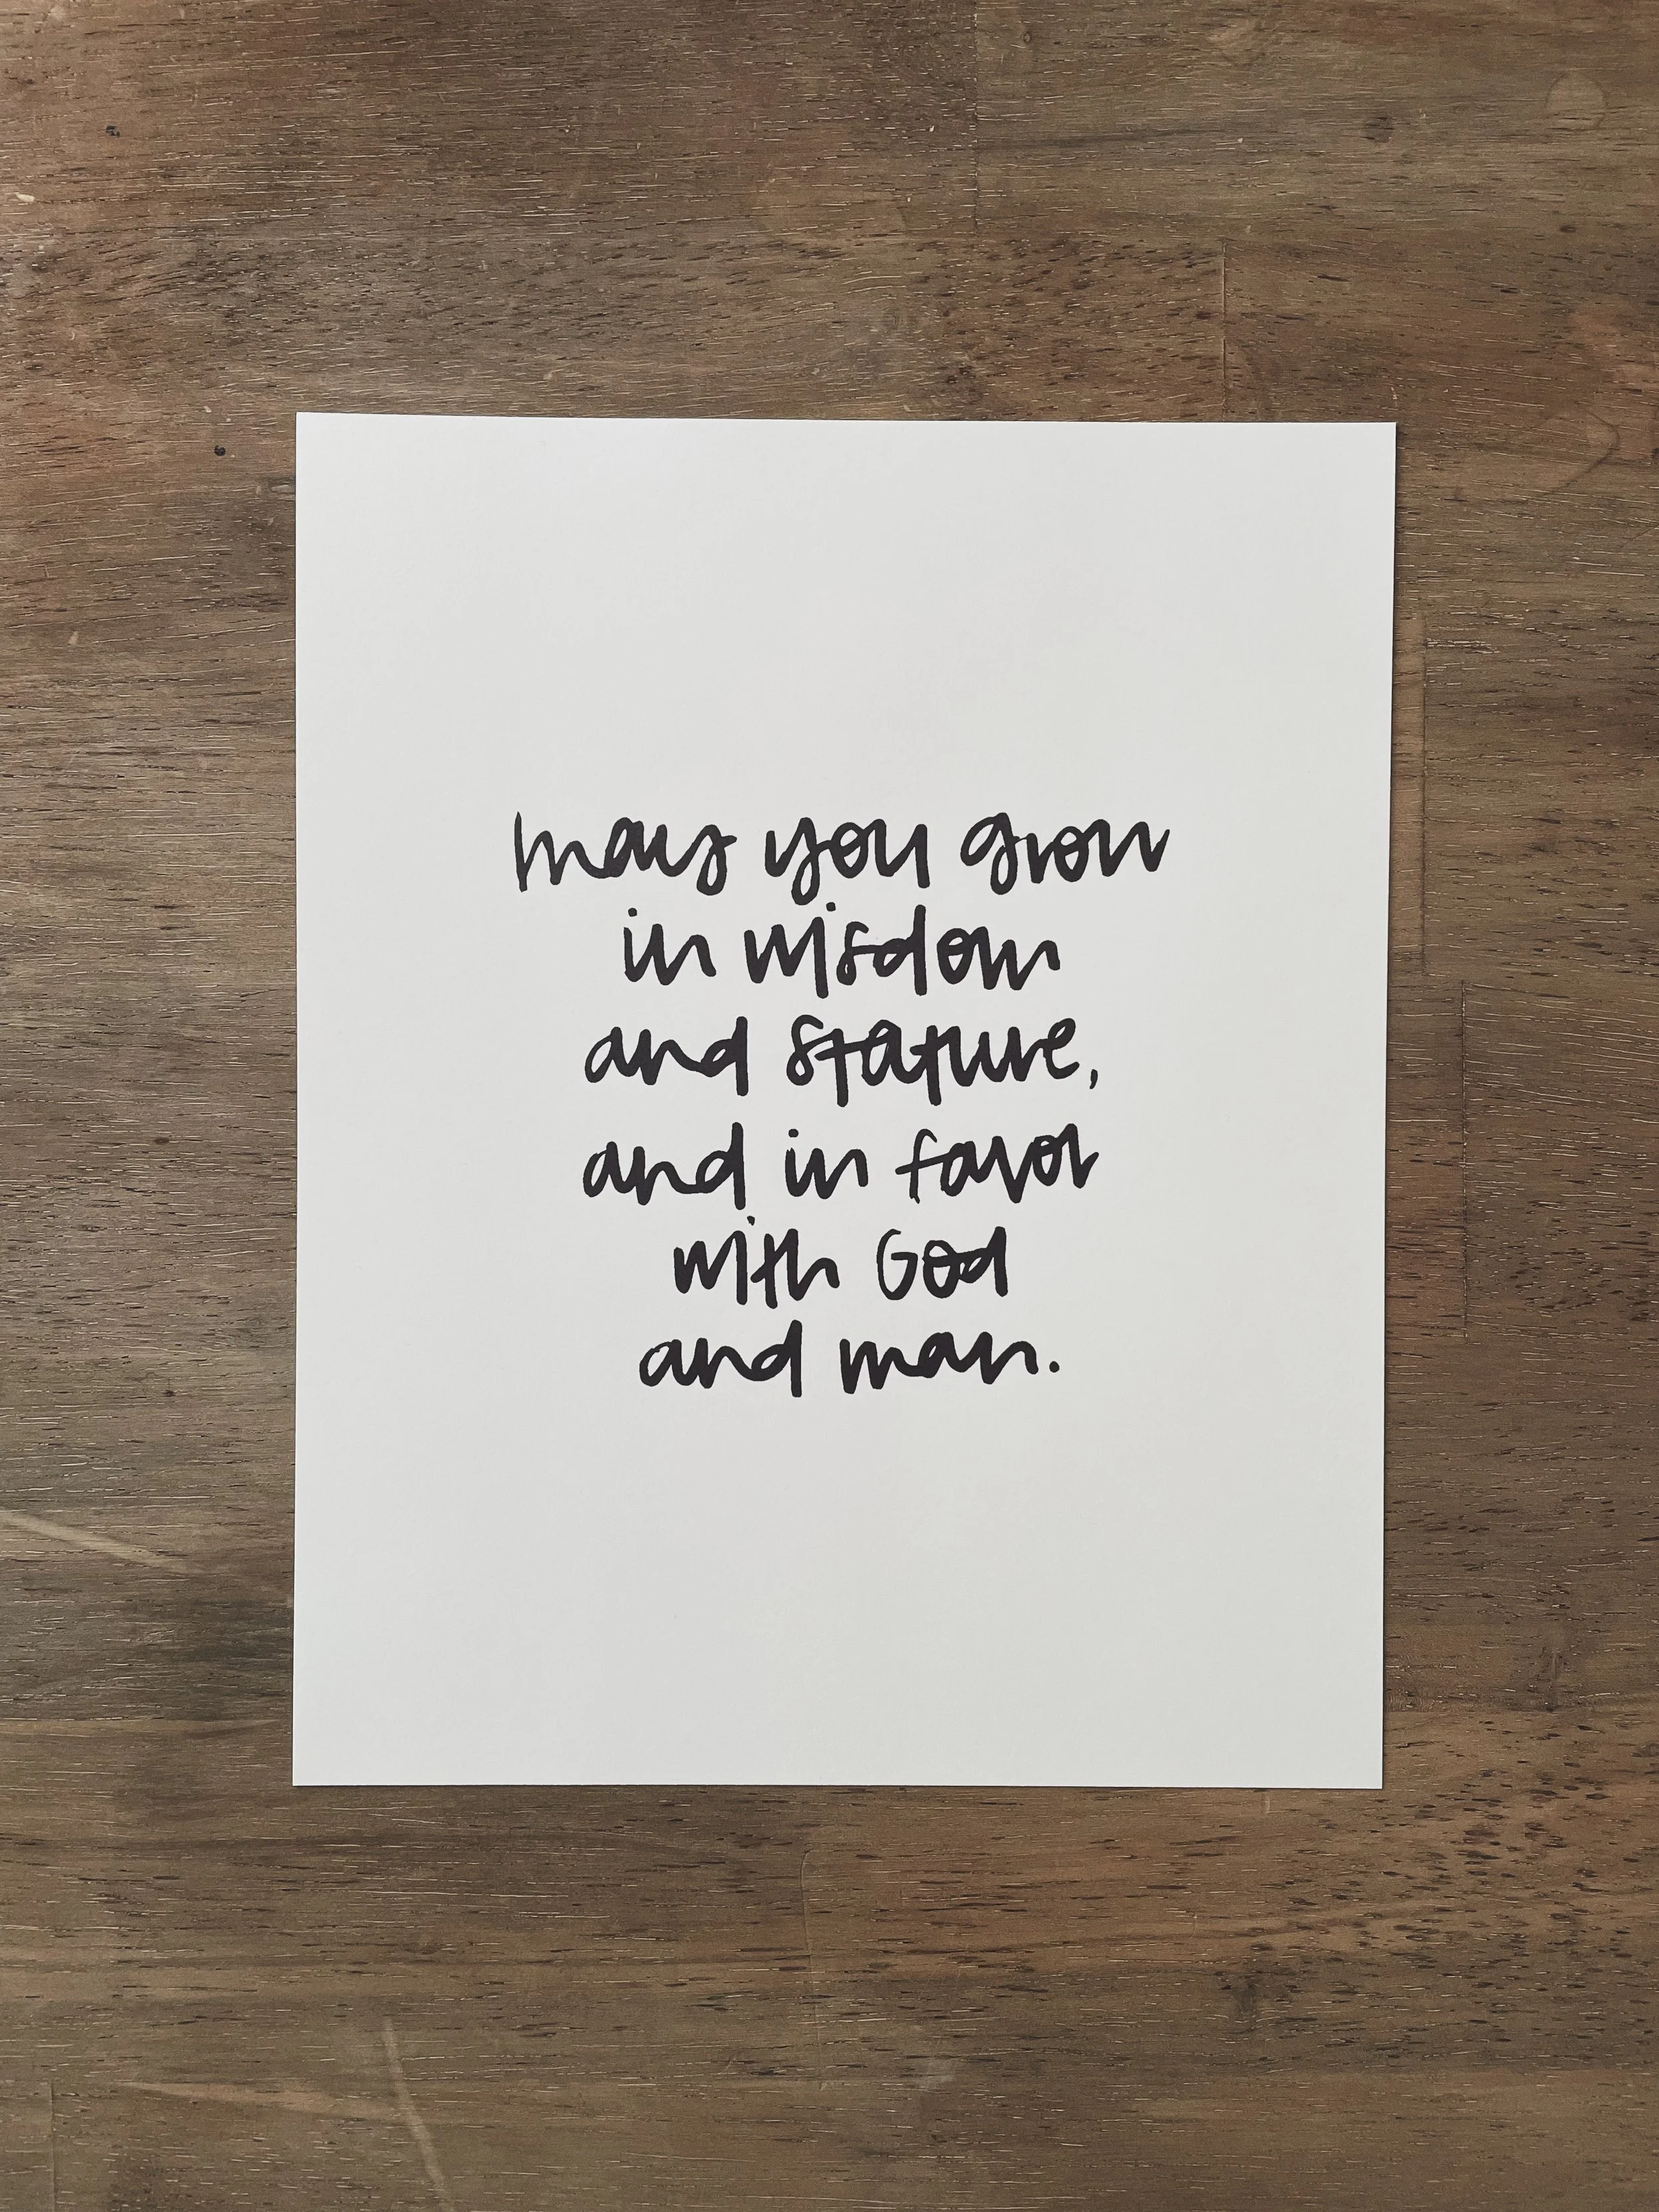 may you grow
in wisdom
and stature,
and in favor
with God
and man.